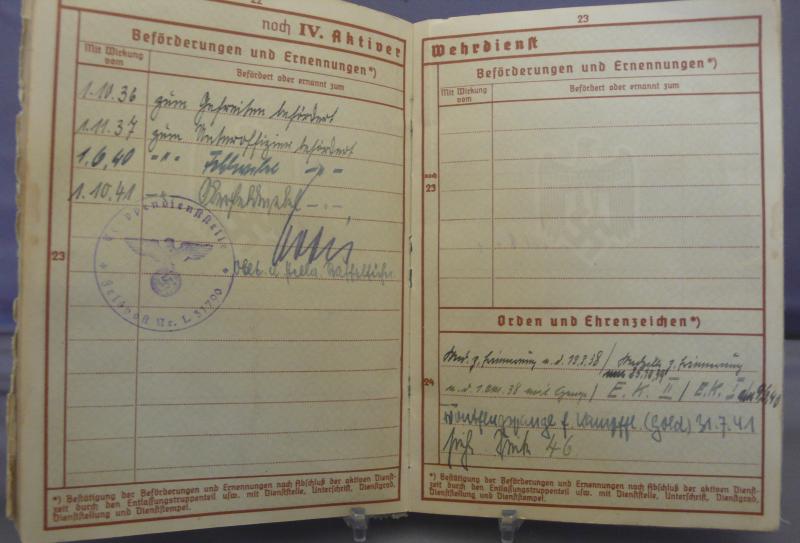 22
noch IV. Aktiver
Beförderungen und Ernennungen*)
Mit Wirkung vom
Befördert oder ernannt zum
1.10.36 zum Gefreiten befördert
1.11.37 zum Unteroffizier befördert
1.6.40 -"- Feldwebel -"-
1.10.41 -"- Oberfeldwebel -"-
23
Truppendienststelle
Feldpost Nr. L 31790
Oblt. u. Staffelführer
*) Bestätigung der Beförderungen und Ernennungen nach Abschluß der aktiven Dienst-
zeit durch den Entlassungstruppenteil usw. mit Dienststelle, Unterschrift, Dienstgrad,
Dienststellung und Dienststempel.
23
Wehrdienst
Beförderungen und Ernennungen*)
Mit Wirkung vom
Befördert oder ernannt zum
noch
23
Orden und Ehrenzeichen*)
Med. z. Erinnerung a. d. 13.3.38 / Medaille z. Erinnerung
24
a. d. 1.Okt. 38 mit Spange / E.K. II / E.K. I
Frontflugspange f. Kampffl. (Gold) 31.7.41
siehe Seite 46
*) Bestätigung der Beförderungen und Ernennungen nach Abschluß der aktiven Dienst-
zeit durch den Entlassungstruppenteil usw. mit Dienststelle, Unterschrift, Dienstgrad,
Dienststellung und Dienststempel.